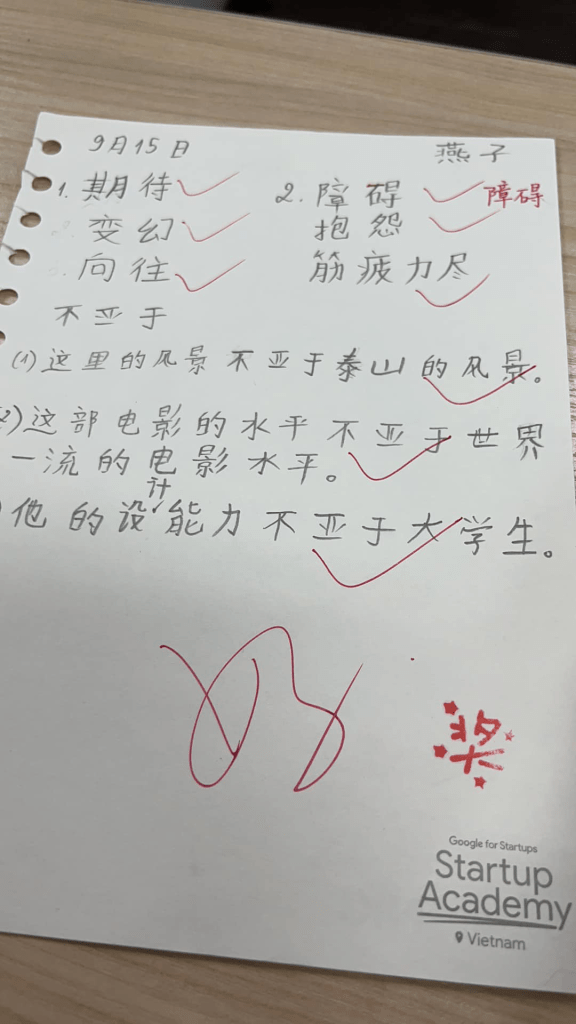 9月15日 燕子
1. 期待 2. 障碍 障碍
变幻 抱怨
向往 筋疲力尽
不亚于
(1) 这里的风景不亚于泰山的风景。
2) 这部电影的水平不亚于世界
一流的电影水平。
计
) 他的设能力不亚于大学生。
好
奖
Google for Startups
Startup
Academy
Vietnam